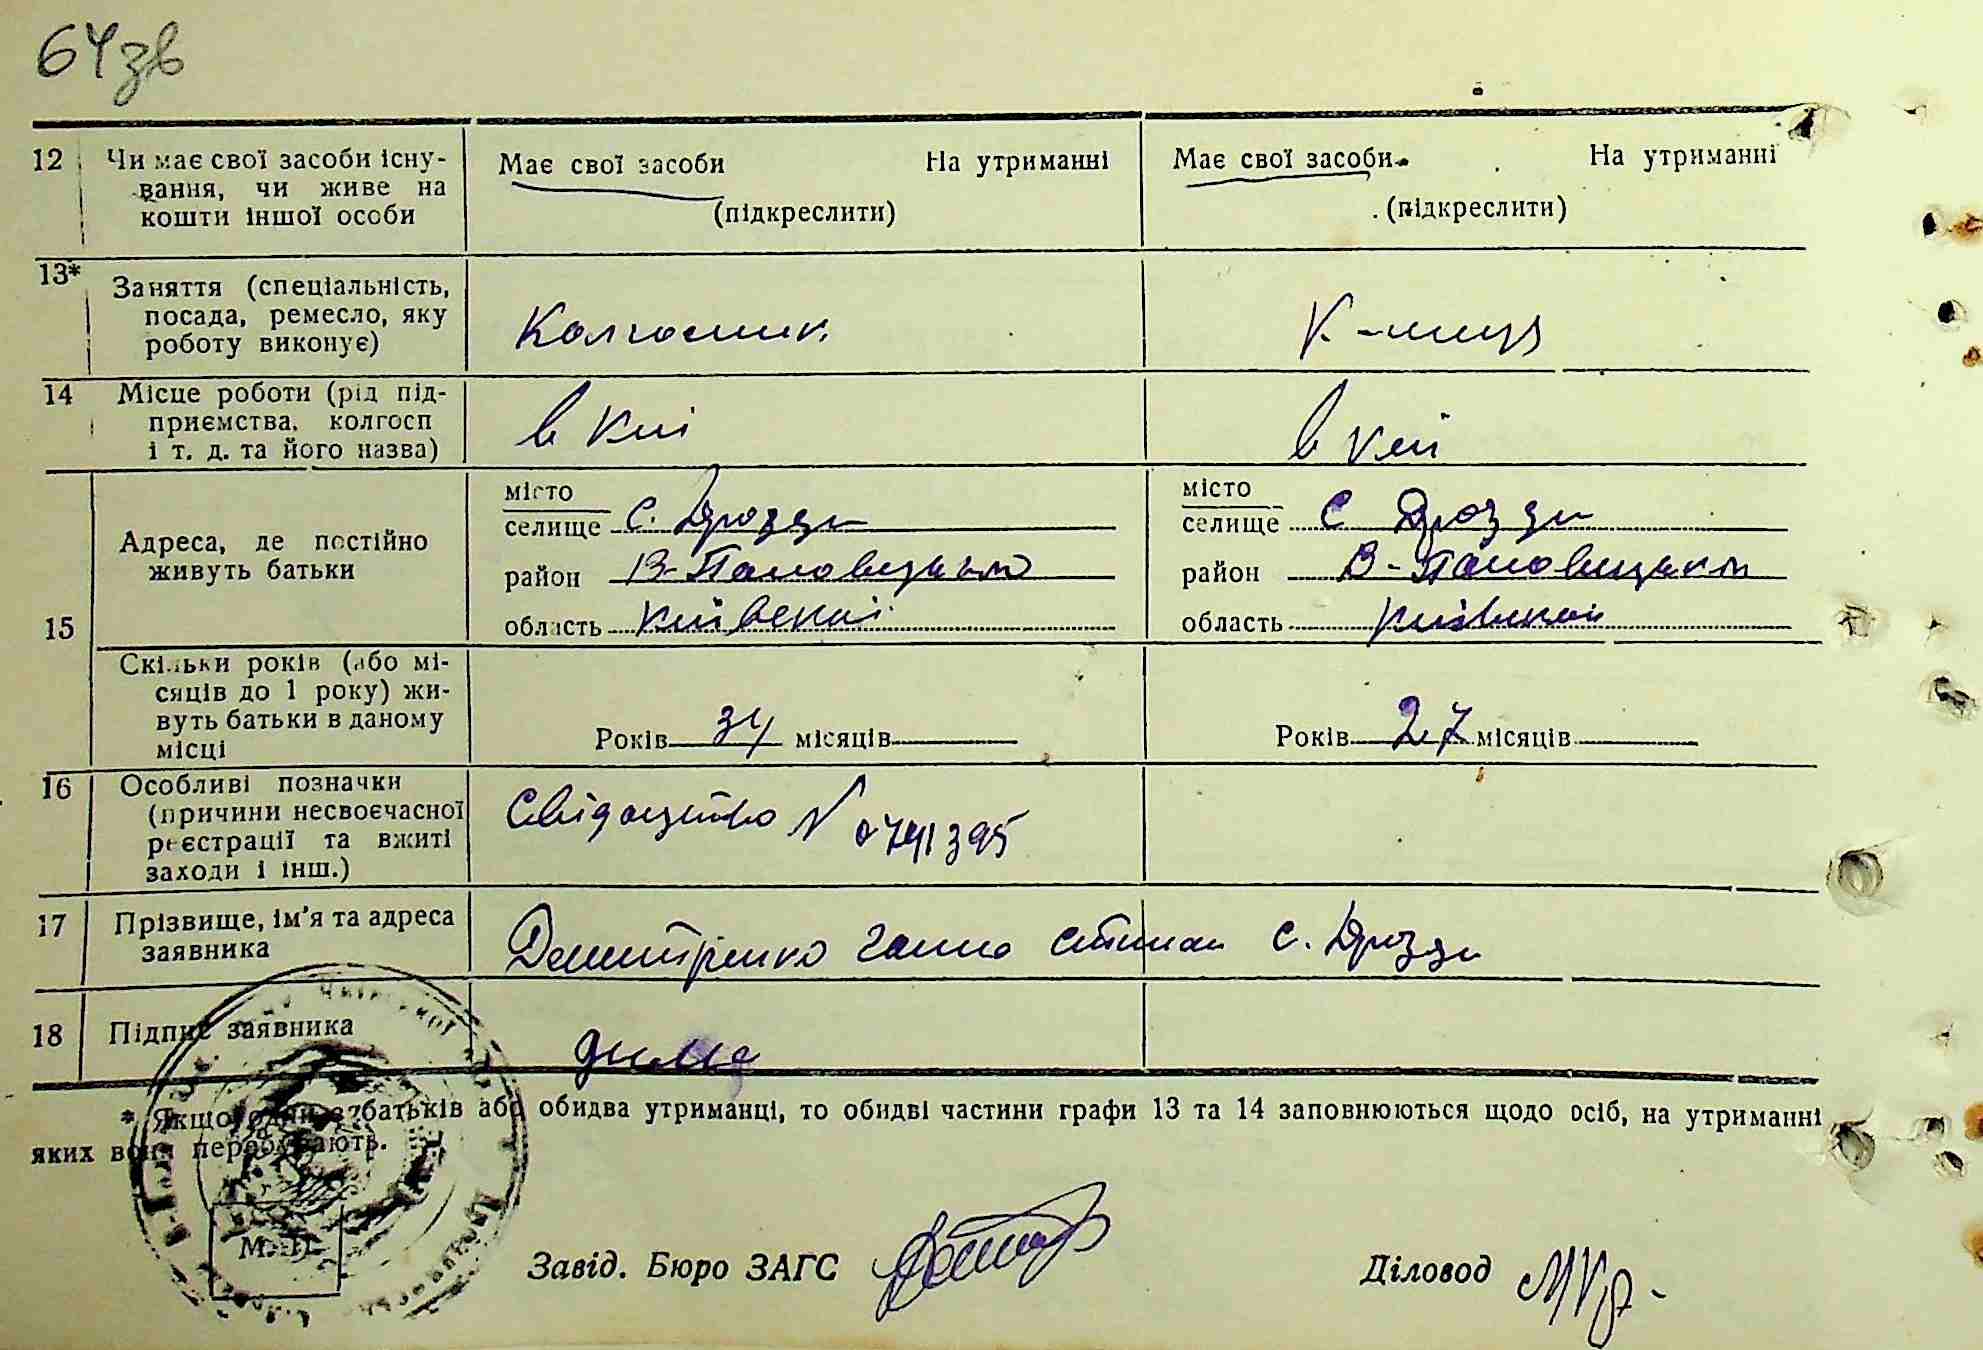 64зв
12 Чи має свої засоби існу-
вання, чи живе на
кошти іншої особи
Має свої засоби На утриманні
(підкреслити)
Має свої засоби На утриманні
(підкреслити)
13* Заняття (спеціальність,
посада, ремесло, яку
роботу виконує)
Колгосник
К-ниця
14 Місце роботи (рід під-
приємства, колгосп
і т. д. та його назва)
в кпі
в кпі
15 Адреса, де постійно
живуть батьки
місто
селище с. Дрозди
район В-Половецького
область Київської
місто
селище с Дрозди
район В-Половецького
область Київської
Скільки років (або мі-
сяців до 1 року) жи-
вуть батьки в даному
місці
Років 34 місяців
Років 27 місяців
16 Особливі позначки
(причини несвоєчасної
реєстрації та вжиті
заходи і інш.)
Свідоцтво N 0791395
17 Прізвище, ім'я та адреса
заявника
Дмитренко Ганна с. Дрозди
18 Підпис заявника
* Якщо один з батьків або обидва утриманці, то обидві частини графи 13 та 14 заповнюються щодо осіб, на утриманні
яких вони перебувають.
М. П.
Завід. Бюро ЗАГС
Діловод